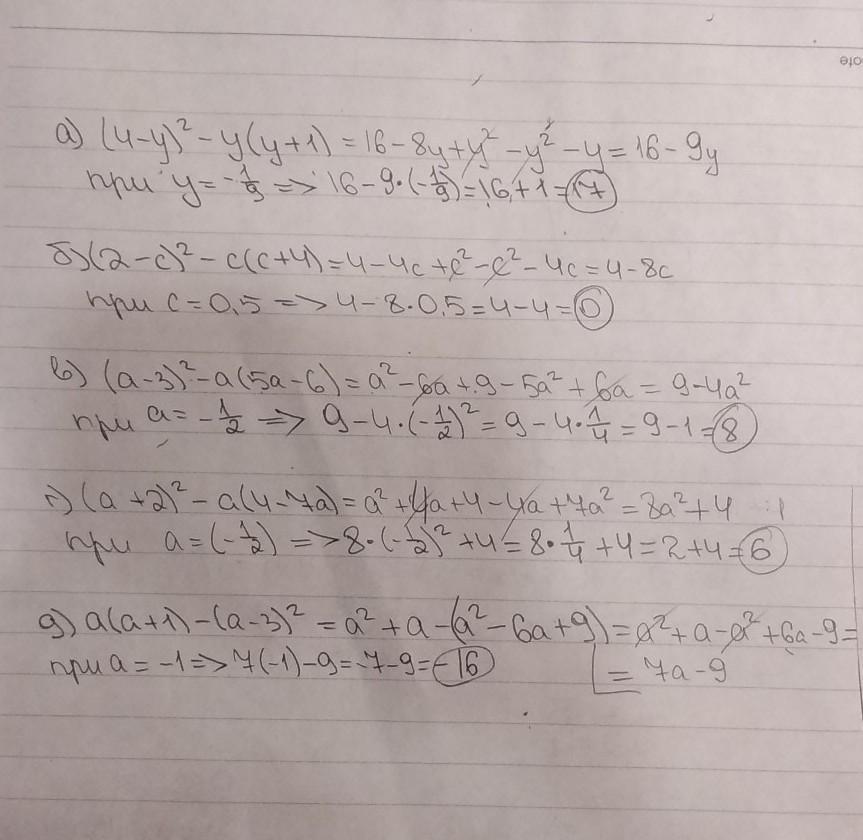 ote
а) (4-y)² - y(y+1) = 16 - 8y + y² - y² - y = 16 - 9y
при y = -1/9 => 16 - 9·(-1/9) = 16 + 1 = 17
б) (2-c)² - c(c+4) = 4 - 4c + c² - c² - 4c = 4 - 8c
при c = 0,5 => 4 - 8·0,5 = 4 - 4 = 0
в) (a-3)² - a(5a-6) = a² - 6a + 9 - 5a² + 6a = 9 - 4a²
при a = -1/2 => 9 - 4·(-1/2)² = 9 - 4·1/4 = 9 - 1 = 8
г) (a+2)² - a(4-7a) = a² + 4a + 4 - 4a + 7a² = 8a² + 4
при a = (-1/2) => 8·(-1/2)² + 4 = 8·1/4 + 4 = 2 + 4 = 6
д) a(a+1) - (a-3)² = a² + a - (a² - 6a + 9) = a² + a - a² + 6a - 9 =
при a = -1 => 7(-1) - 9 = -7 - 9 = -16
= 7a - 9